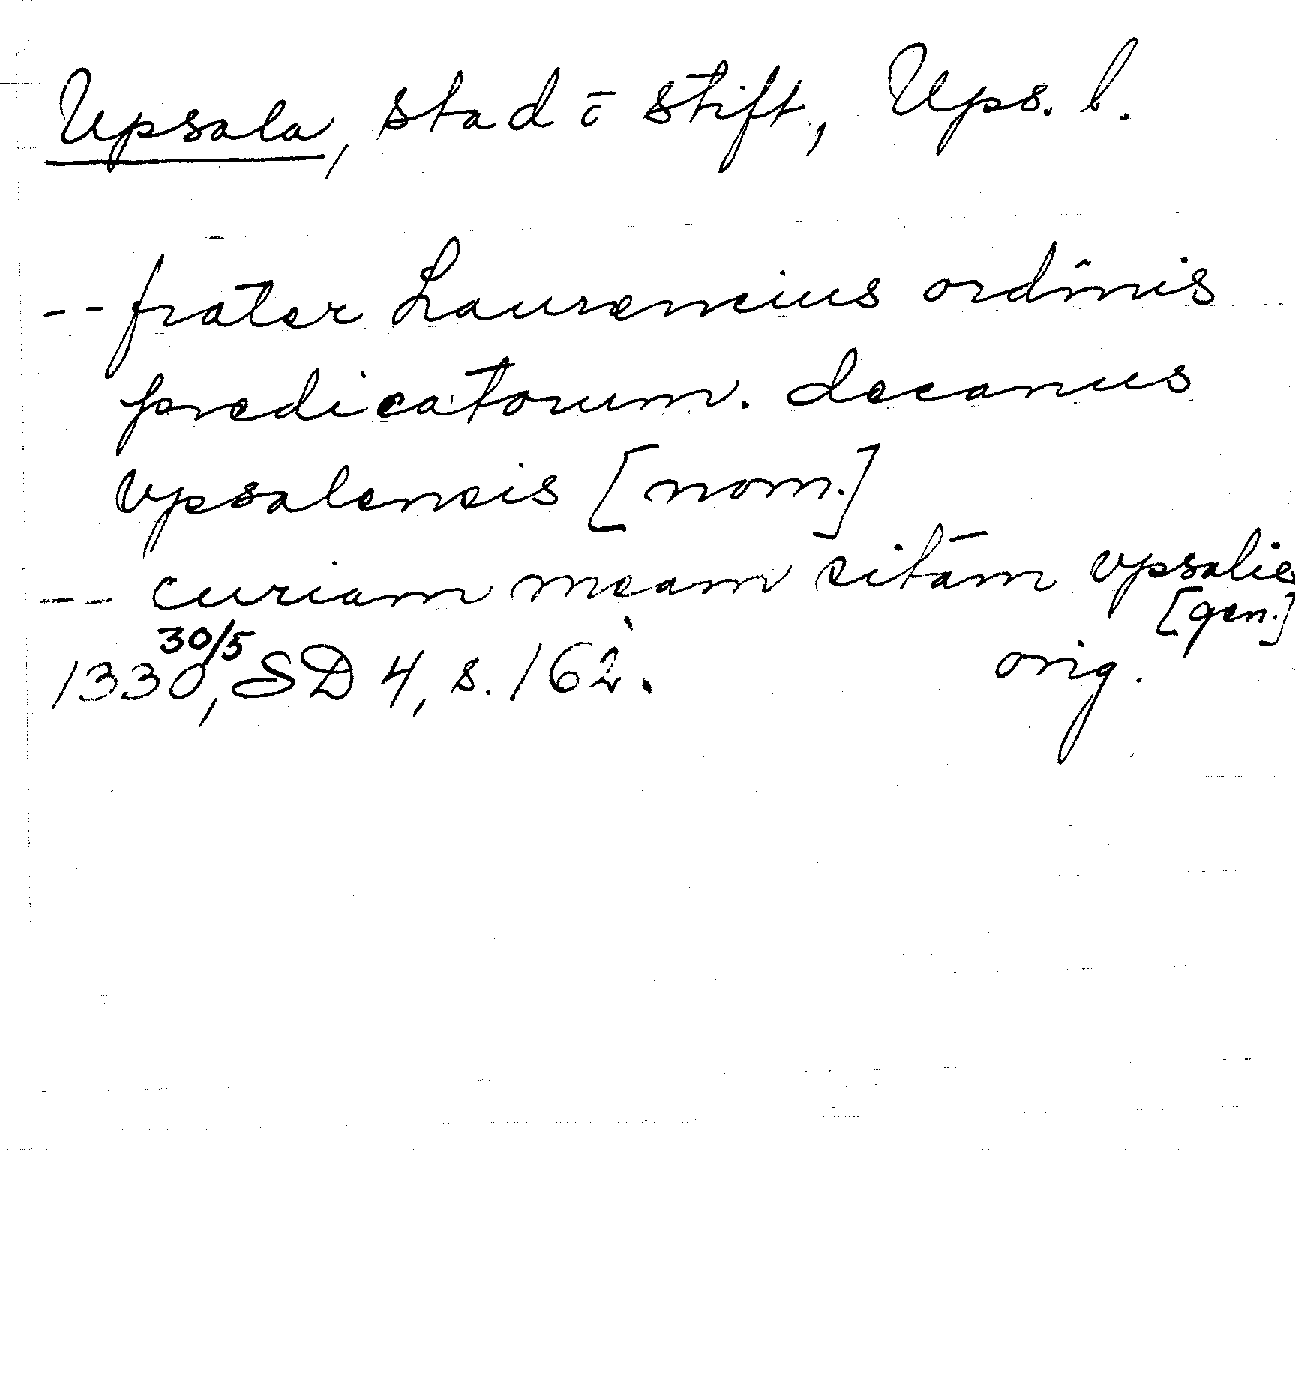 Upsala, stad o stift, Ups. l.
-- frater Laurencius ordinis
predicatorum. decanus
vpsalensis [nom.]
-- curiam meam sitam vpsalie
[gen.]
30/5
1330, SD 4, s. 162. orig.